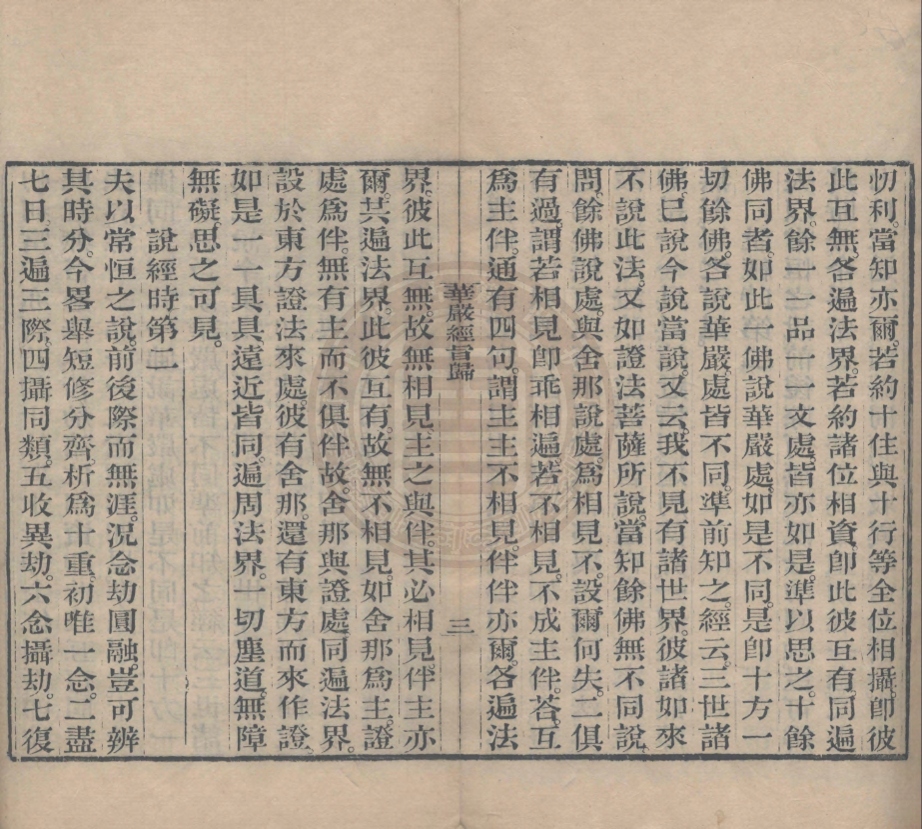 忉利。當知亦爾。若約十住與十行等全位相攝。卽彼
此互無。各遍法界。若約諸位相資。卽此彼互有。同遍
法界。餘一一品一一文處。皆亦如是。準以思之。十餘
佛同者。如此一佛說華嚴處。如是不同。是卽十方一
切餘佛。各說華嚴。處皆不同。準前知之。經云。三世諸
佛。已說今說當說。又云。我不見有諸世界。彼諸如來
不說此法。又如證法菩薩所說。當知餘佛無不同說
問。餘佛說處。與舍那說處。爲相見不。設爾何失。二俱
有過。謂若相見卽乖相遍。若不相見。不成主伴。荅。互
爲主伴。通有四句。謂主主不相見。伴伴亦爾。各遍法
華嚴經旨歸
三
界。彼此互無。故無相見。主之與伴。其必相見。伴主亦
爾。共遍法界。此彼互有。故無不相見。如舍那爲主。證
處爲伴。無有主而不俱伴。故舍那與證處。同遍法界。
設於東方證法來處。彼有舍那。還有東方而來作證。
如是一一具具。遠近皆同。遍周法界。一切塵道。無障
無礙。思之可見。
說經時第二
夫以常恒之說。前後際而無涯。況念劫圓融。豈可辨
其時分。今畧舉短修分齊。析爲十重。初唯一念。二盡
七日。三遍三際。四攝同類。五收異劫。六念攝劫。七復